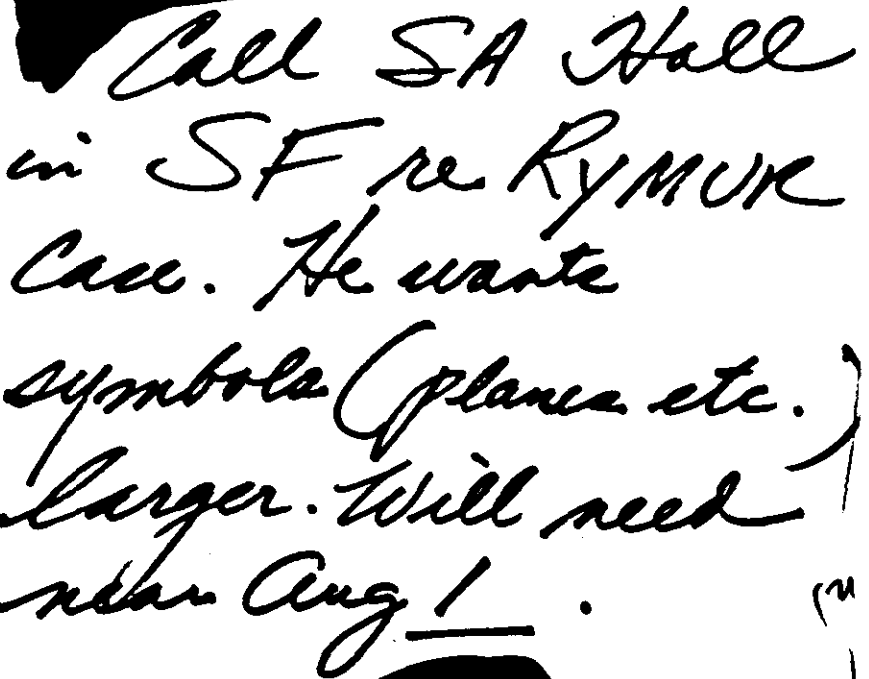 Call SA Hall
in SF re RYMUR
Case. He wants
symbols (planes etc.)
larger. Will need
near Aug 1.